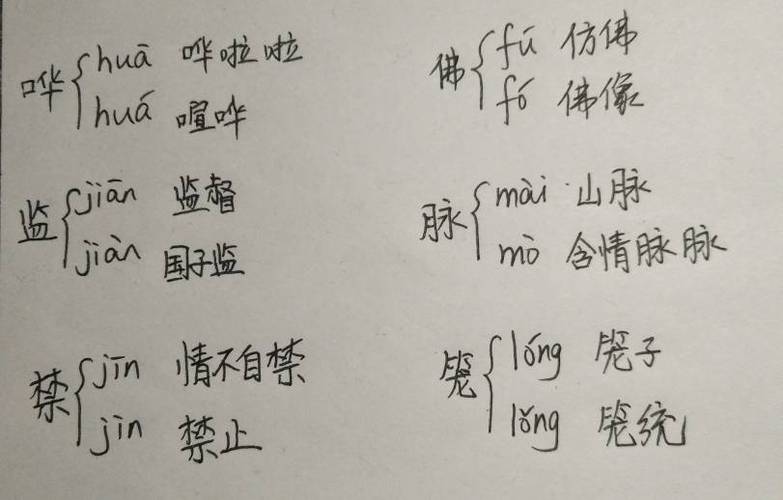 哗 huā 哗啦啦
huá 喧哗
佛 fú 仿佛
fó 佛像
监 jiān 监督
jiàn 国子监
脉 mài 山脉
mò 含情脉脉
禁 jīn 情不自禁
jìn 禁止
笼 lóng 笼子
lǒng 笼统